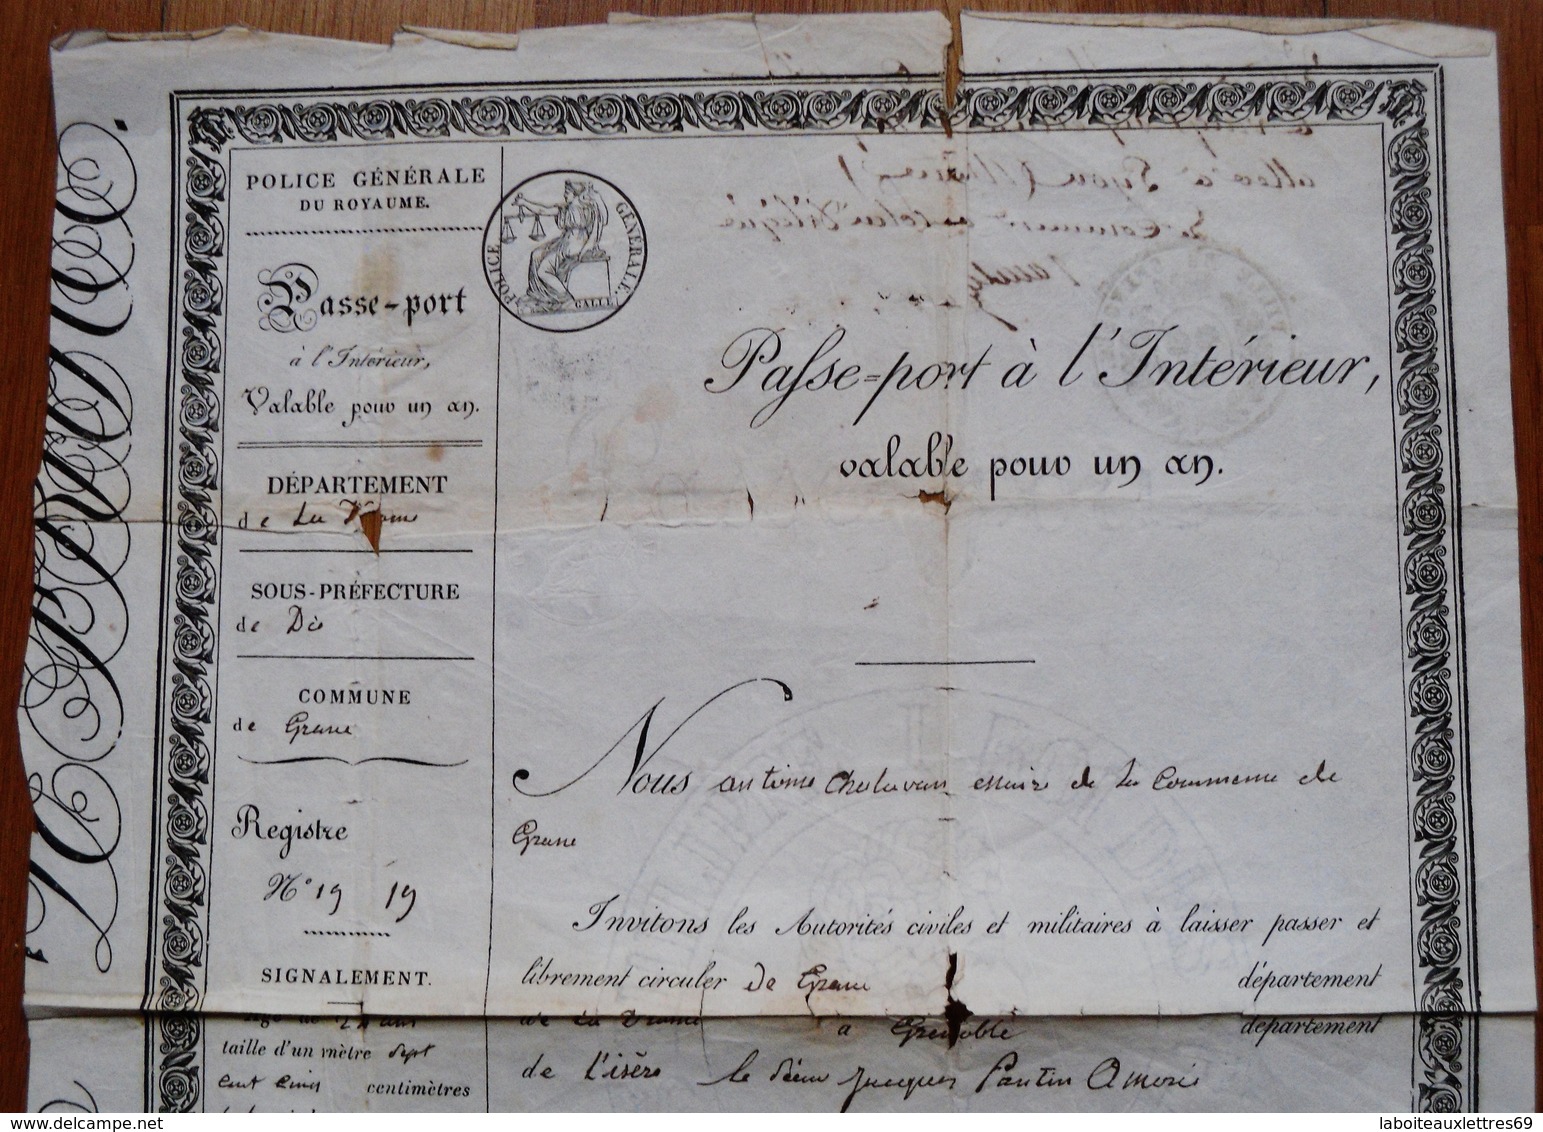 POLICE GÉNÉRALE
DU ROYAUME.
Passe-port
à l'Intérieur,
Valable pour un an.
DÉPARTEMENT
de La Drome
SOUS-PRÉFECTURE
de Die
COMMUNE
de Grane
Registre
N° 19 19
SIGNALEMENT.
taille d'un mètre sept
cent cinq centimètres
POLICE GÉNÉRALE.
GALLE
Passe-port à l'Intérieur,
valable pour un an.
Nous antoine Chalavan maire de La Commune de
Grane
Invitons les Autorités civiles et militaires à laisser passer et
librement circuler de Grane département
de La Drome à Grenoble département
de l'isère le sieur Jacques Pantin
laboiteauxlettres69